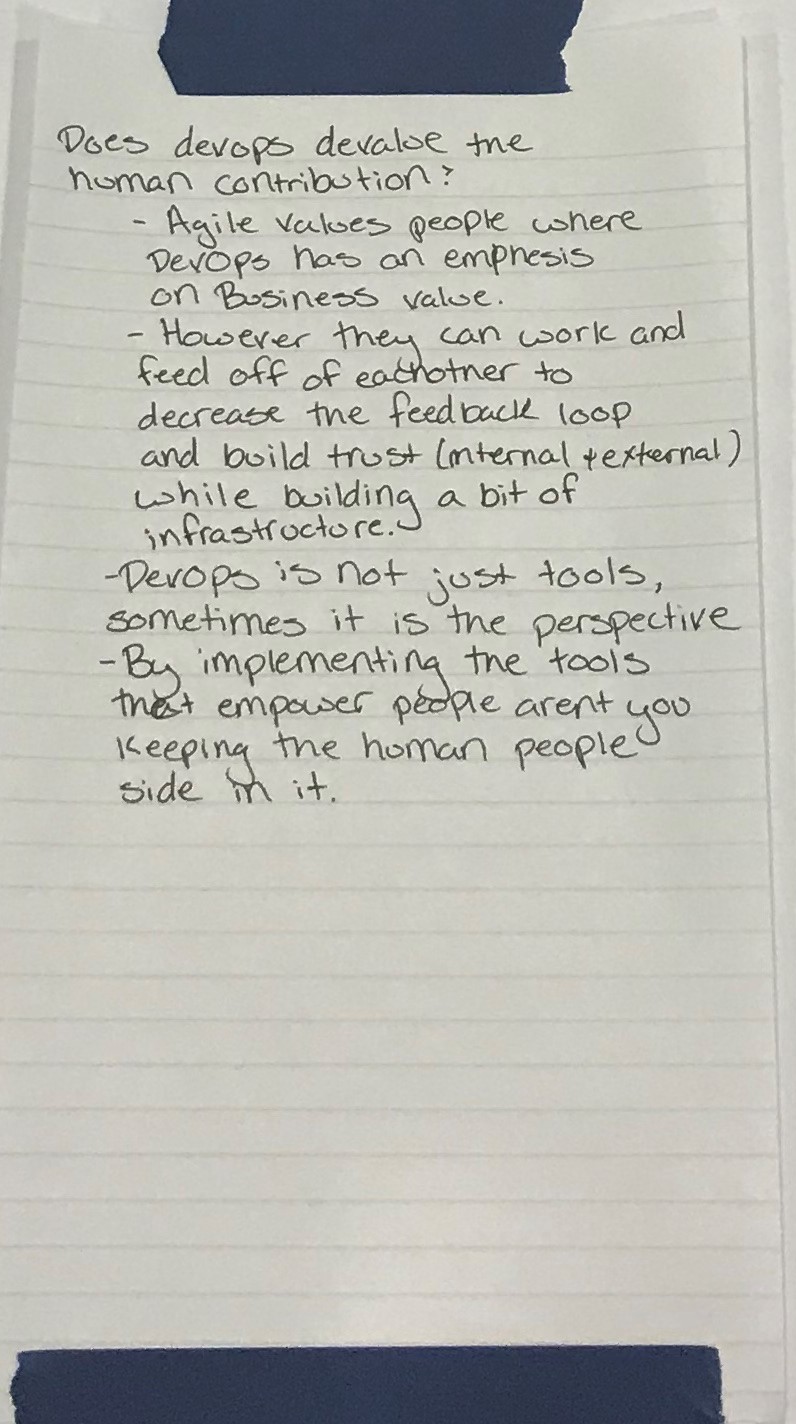 Does devops devalue the
human contribution?
- Agile values people where
DevOps has an emphesis
on Business value.
- However they can work and
feed off of eachother to
decrease the feedback loop
and build trust (internal + external)
while building a bit of
infrastructure.
- Devops is not just tools,
sometimes it is the perspective
- By implementing the tools
that empower people arent you
Keeping the human people
side in it.